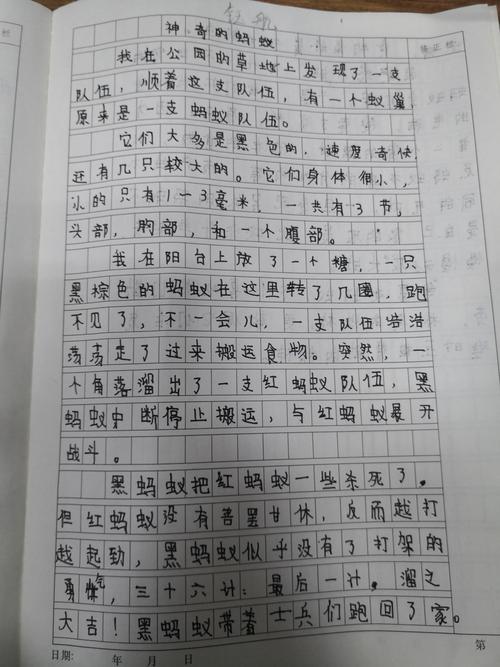 神奇的蚂蚁
我在公园的草地上发现了一支
队伍，顺着这支队伍，有一个蚁巢，
原来是一支蚂蚁队伍。
它们大多是黑色的，速度奇快，
还有几只较大的。它们身体很小，
小的只有1－3毫米，一共有3节，
头部，胸部，和一个腹部。
我在阳台上放了一个糖，一只
黑棕色的蚂蚁在这里转了几圈，跑
不见了，不一会儿，一支队伍浩浩
荡荡走了过来搬运食物。突然，一
个角落溜出了一支红蚂蚁队伍，黑
蚂蚁中断停止搬运，与红蚂蚁展开
战斗。
黑蚂蚁把红蚂蚁一些杀死了。
但红蚂蚁没有善罢甘休，反而越打
越起劲，黑蚂蚁似乎没有了打架的
勇气，三十六计：最后一计，溜之
大吉！黑蚂蚁带着士兵们跑回了家。
日期： 年 月 日
第